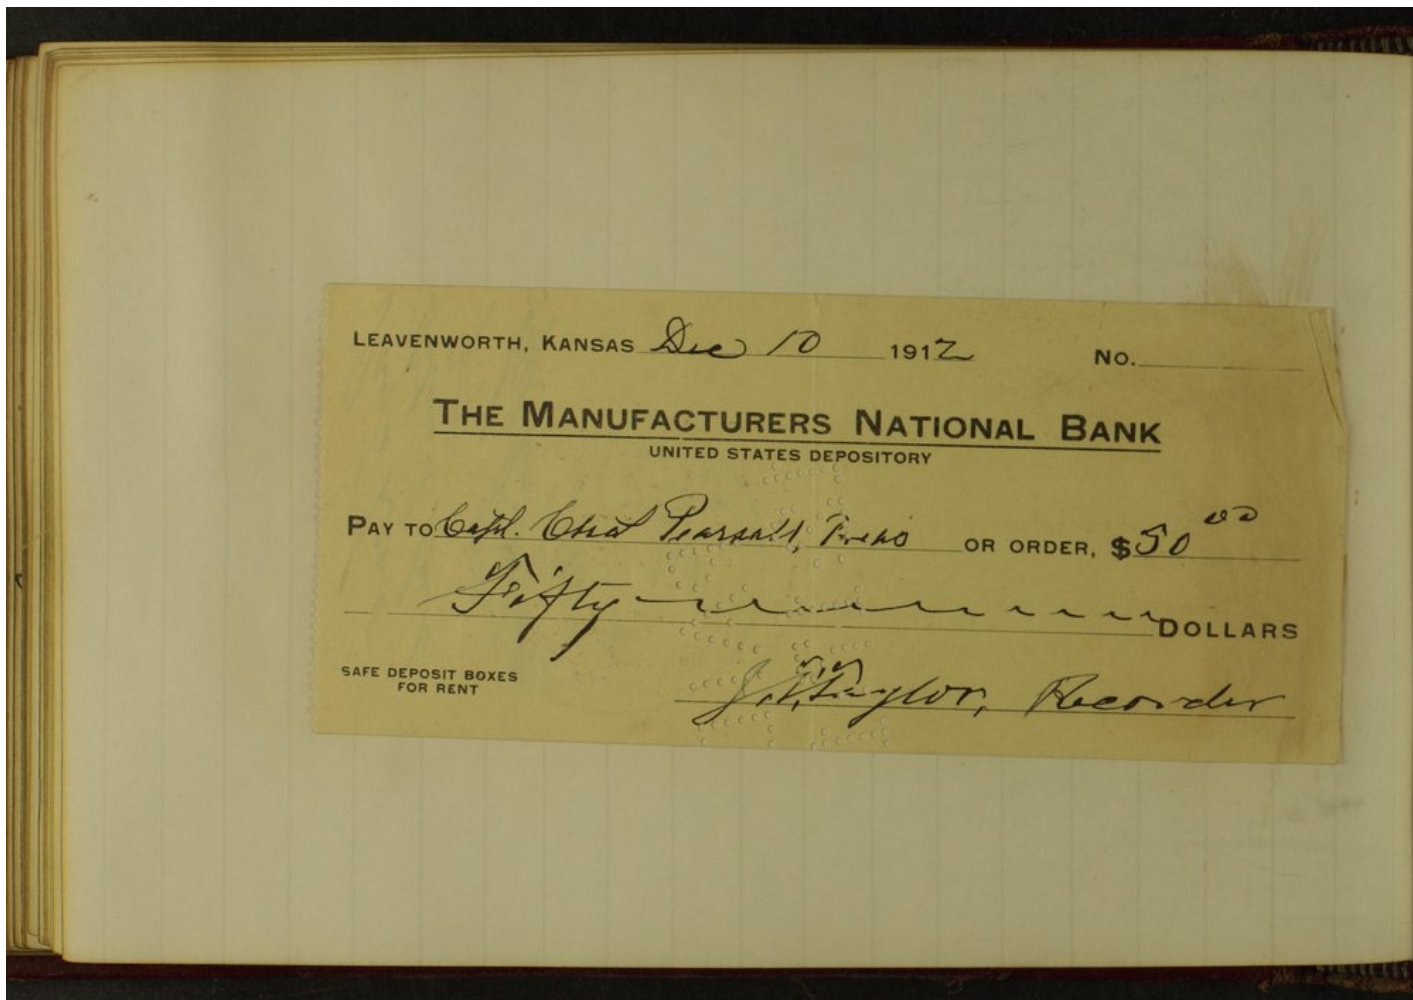 LEAVENWORTH, KANSAS Dec 10 1912 No.
THE MANUFACTURERS NATIONAL BANK
UNITED STATES DEPOSITORY
PAY TO Capt. Chas Pearsall, Treas OR ORDER, $50 00
Fifty DOLLARS
SAFE DEPOSIT BOXES
FOR RENT
Taylor, Recorder